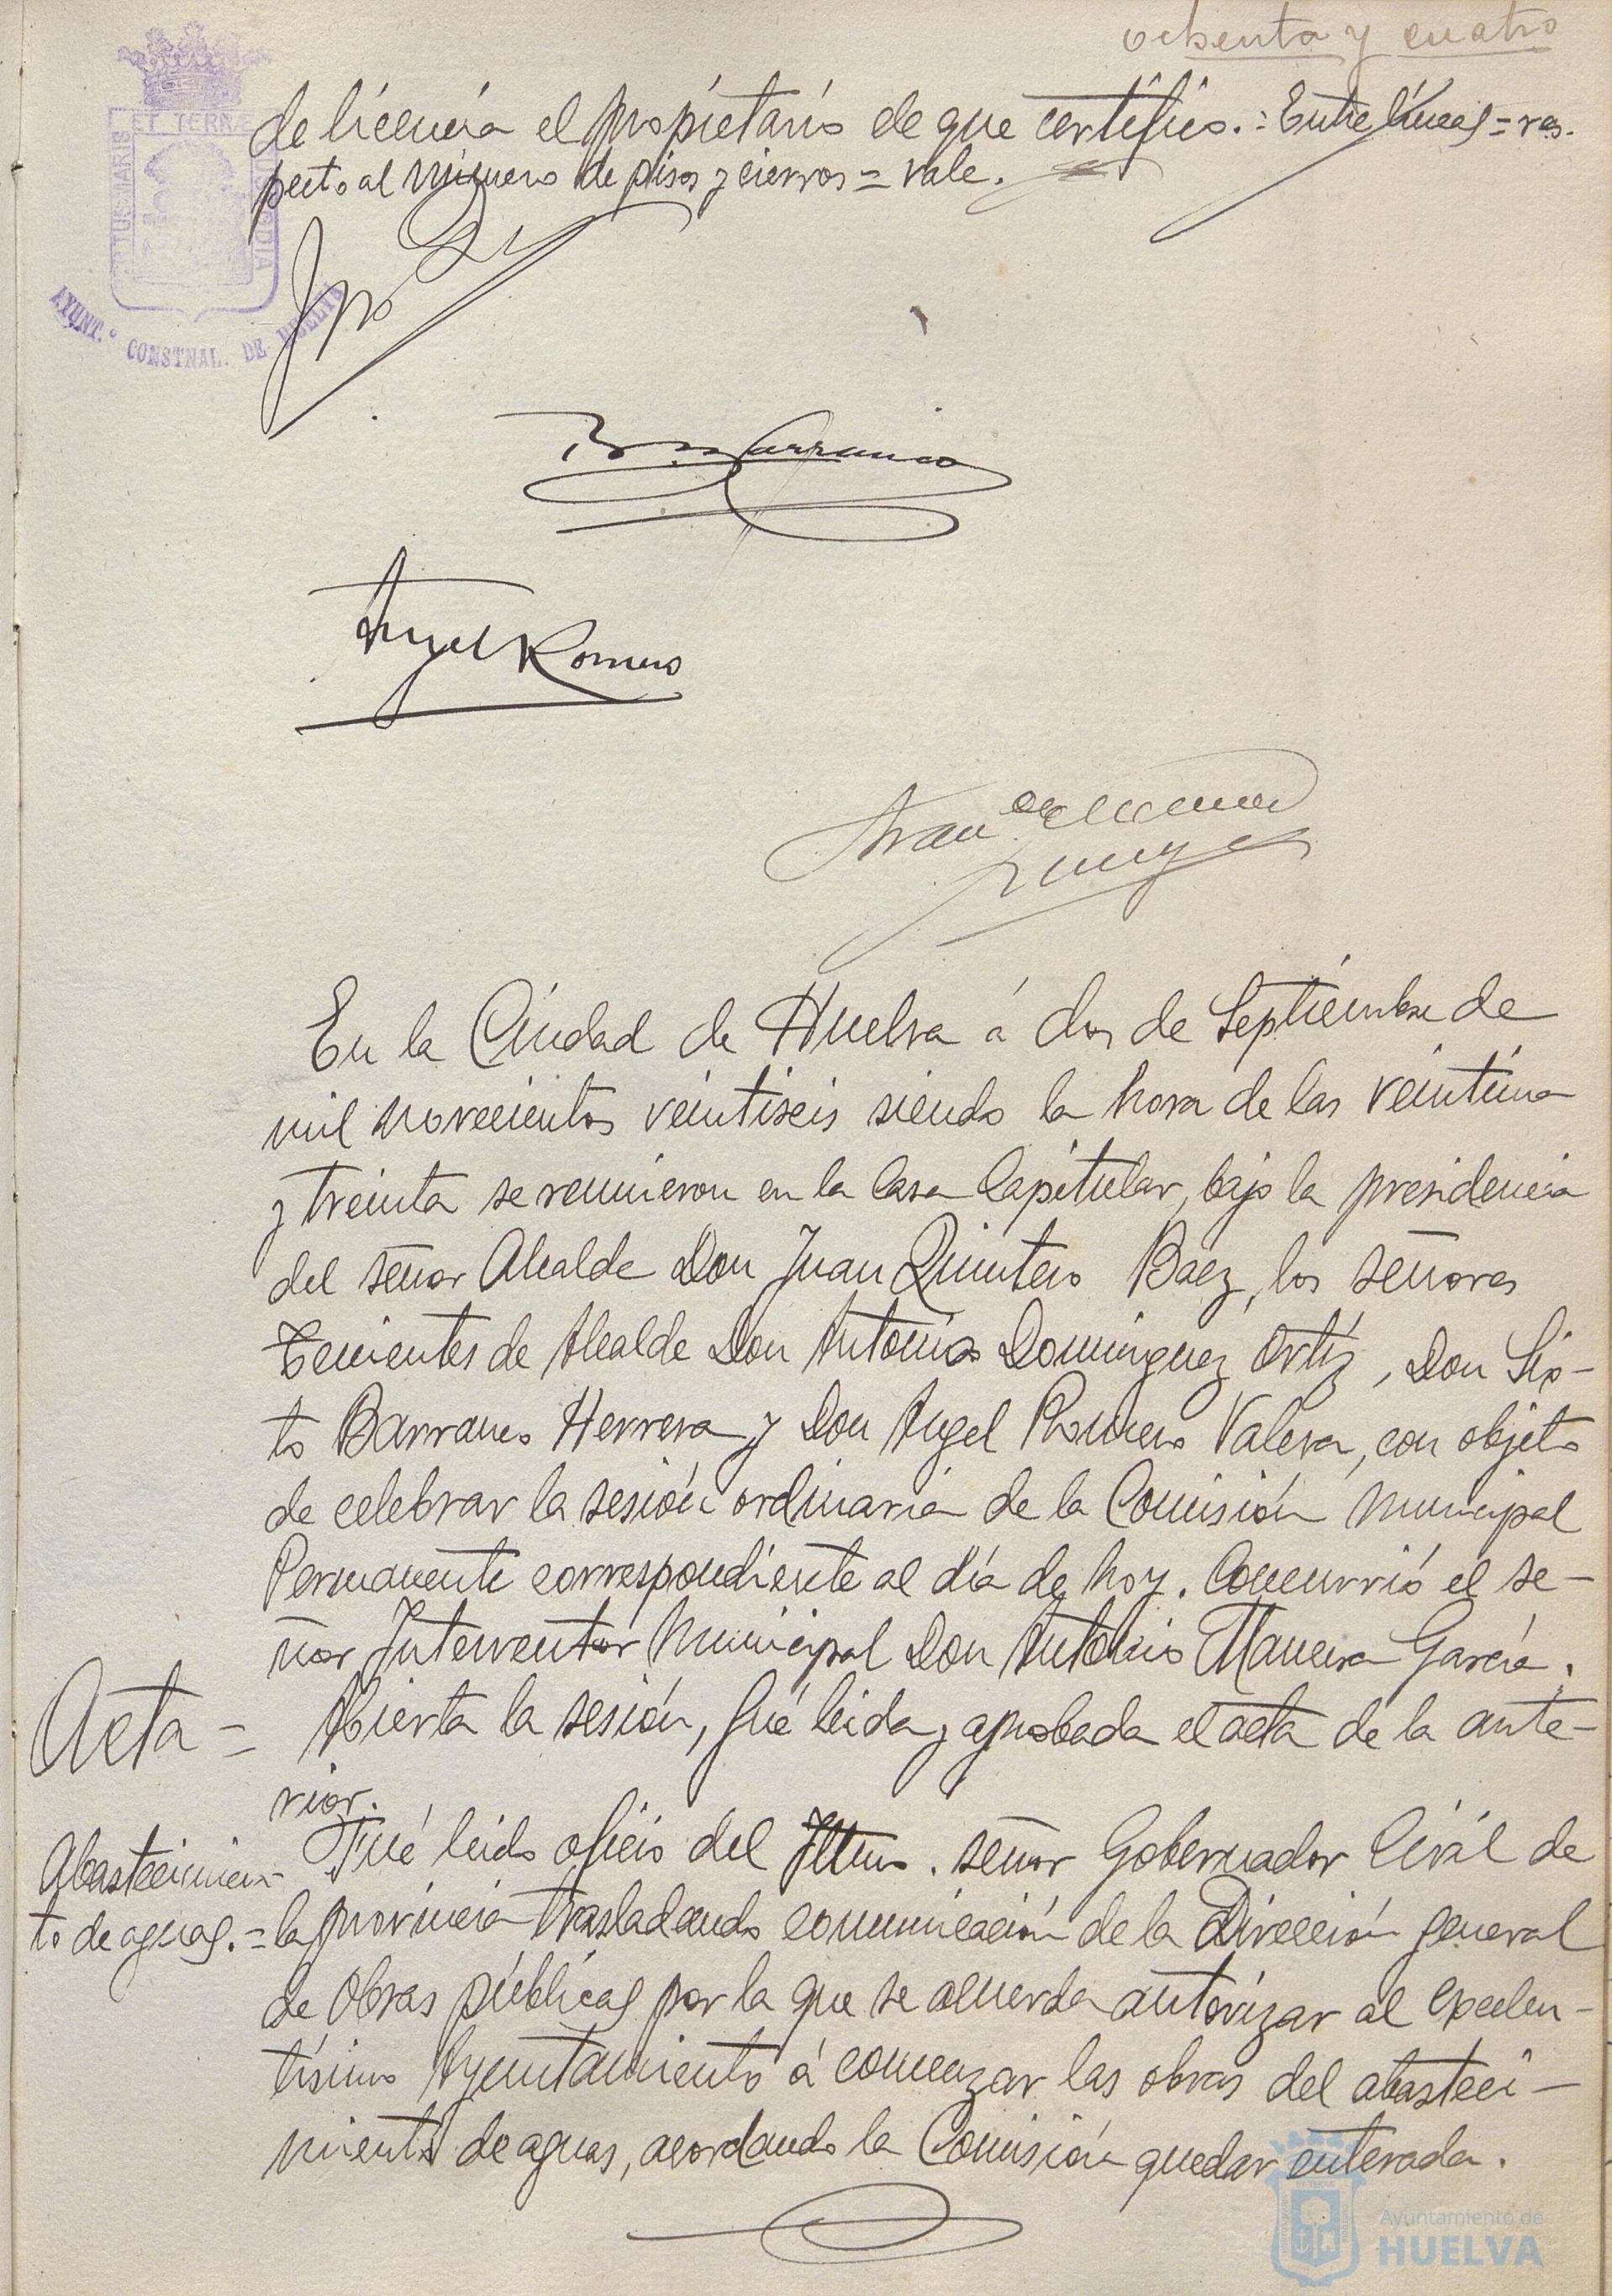 ochenta y cuatro
de licencia el propietario de que certifico.=Entre líneas=res-
pecto al número de pisos y cierros=vale.
PORTUS MARIS ET TERRAE CUSTODIA
AYUNT.º CONSTNAL. DE HUELVA
Barranco
Angel Romero
En la Ciudad de Huelva á dos de Septiembre de
mil novecientos veintiseis siendo la hora de las veintiuna
y treinta se reunieron en la Casa Capitular, bajo la presidencia
del señor Alcalde Don Juan Quintero Baez, los señores
Tenientes de Alcalde Don Antonio Dominguez Ortíz, Don Six-
to Barranco Herrera y Don Angel Romero Valera, con objeto
de celebrar la sesión ordinaria de la Comisión Municipal
Permanente correspondiente al día de hoy. Concurrió el se-
ñor Interventor Municipal Don Antonio Maneira García.
Acta=
Abierta la sesión, fué leida y aprobada el acta de la ante-
rior.
Abastecimien-
to de aguas.=
Fué leido oficio del Iltmo. señor Gobernador Civil de
la provincia trasladando comunicación de la Dirección general
de Obras públicas por la que se acuerda autorizar al Excelen-
tísimo Ayuntamiento á comenzar las obras del abasteci-
miento de aguas, acordando la Comisión quedar enterada.
Ayuntamiento de
HUELVA